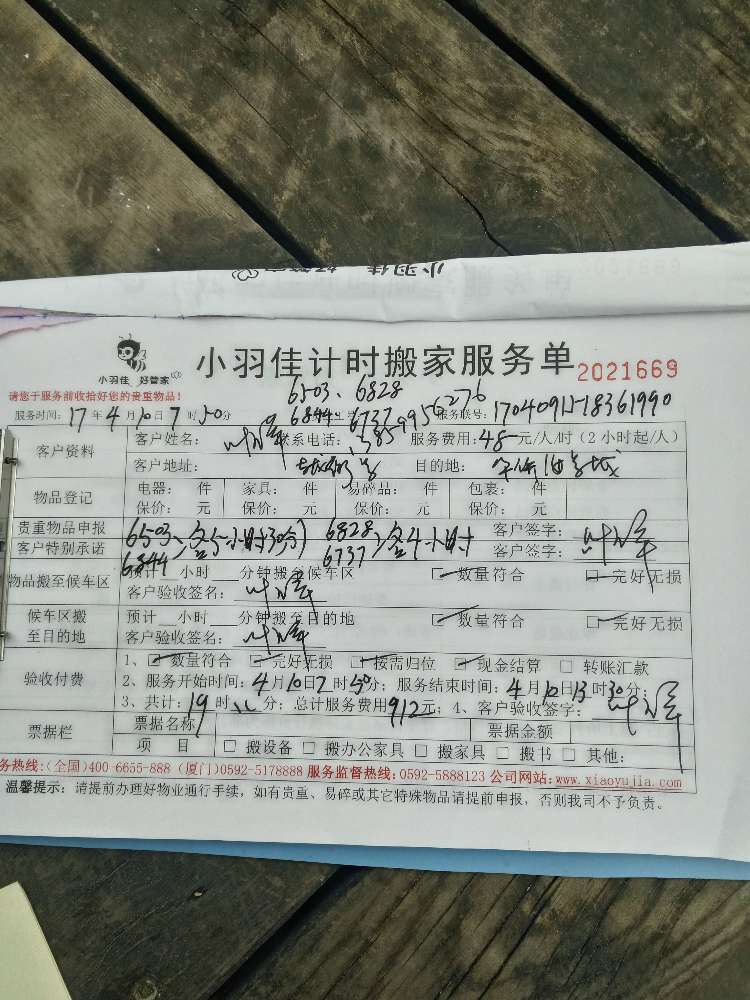 小羽佳 好管家
小羽佳 好管家
小羽佳计时搬家服务单 2021669
请您于服务前收拾好您的贵重物品!
6503、6828
6844 6737
服务时间: 17年4月10日7时50分 服务联号: 17040911-18361990
客户资料 客户姓名: 联系电话: 13859956276 服务费用: 48元/人/时(2小时起/人)
客户地址: 目的地:
物品登记 电器: 件 家具: 件 易碎品: 件 包裹: 件
保价: 元 保价: 元 保价: 元 保价: 元
贵重物品申报 6503 各5小时30分 6828 各4小时 客户签字:
客户特别承诺 6844 6737 客户签字:
物品搬至候车区 预计 小时 分钟搬至候车区 数量符合 完好无损
客户验收签名:
候车区搬至目的地 预计 小时 分钟搬至目的地 数量符合 完好无损
客户验收签名:
验收付费 1、数量符合 完好无损 按需归位 现金结算 转账汇款
2、服务开始时间: 4月10日7时50分; 服务结束时间: 4月10日13时30分;
3、共计: 19时 分; 总计服务费用912元; 4、客户验收签字:
票据栏 票据名称 票据金额
项 目 搬设备 搬办公家具 搬家具 搬书 其他:
务热线:(全国)400-6655-888 (厦门)0592-5178888 服务监督热线:0592-5888123 公司网站:www.xiaoyujia.com
温馨提示: 请提前办理好物业通行手续, 如有贵重、易碎或其它特殊物品请提前申报, 否则我司不予负责。